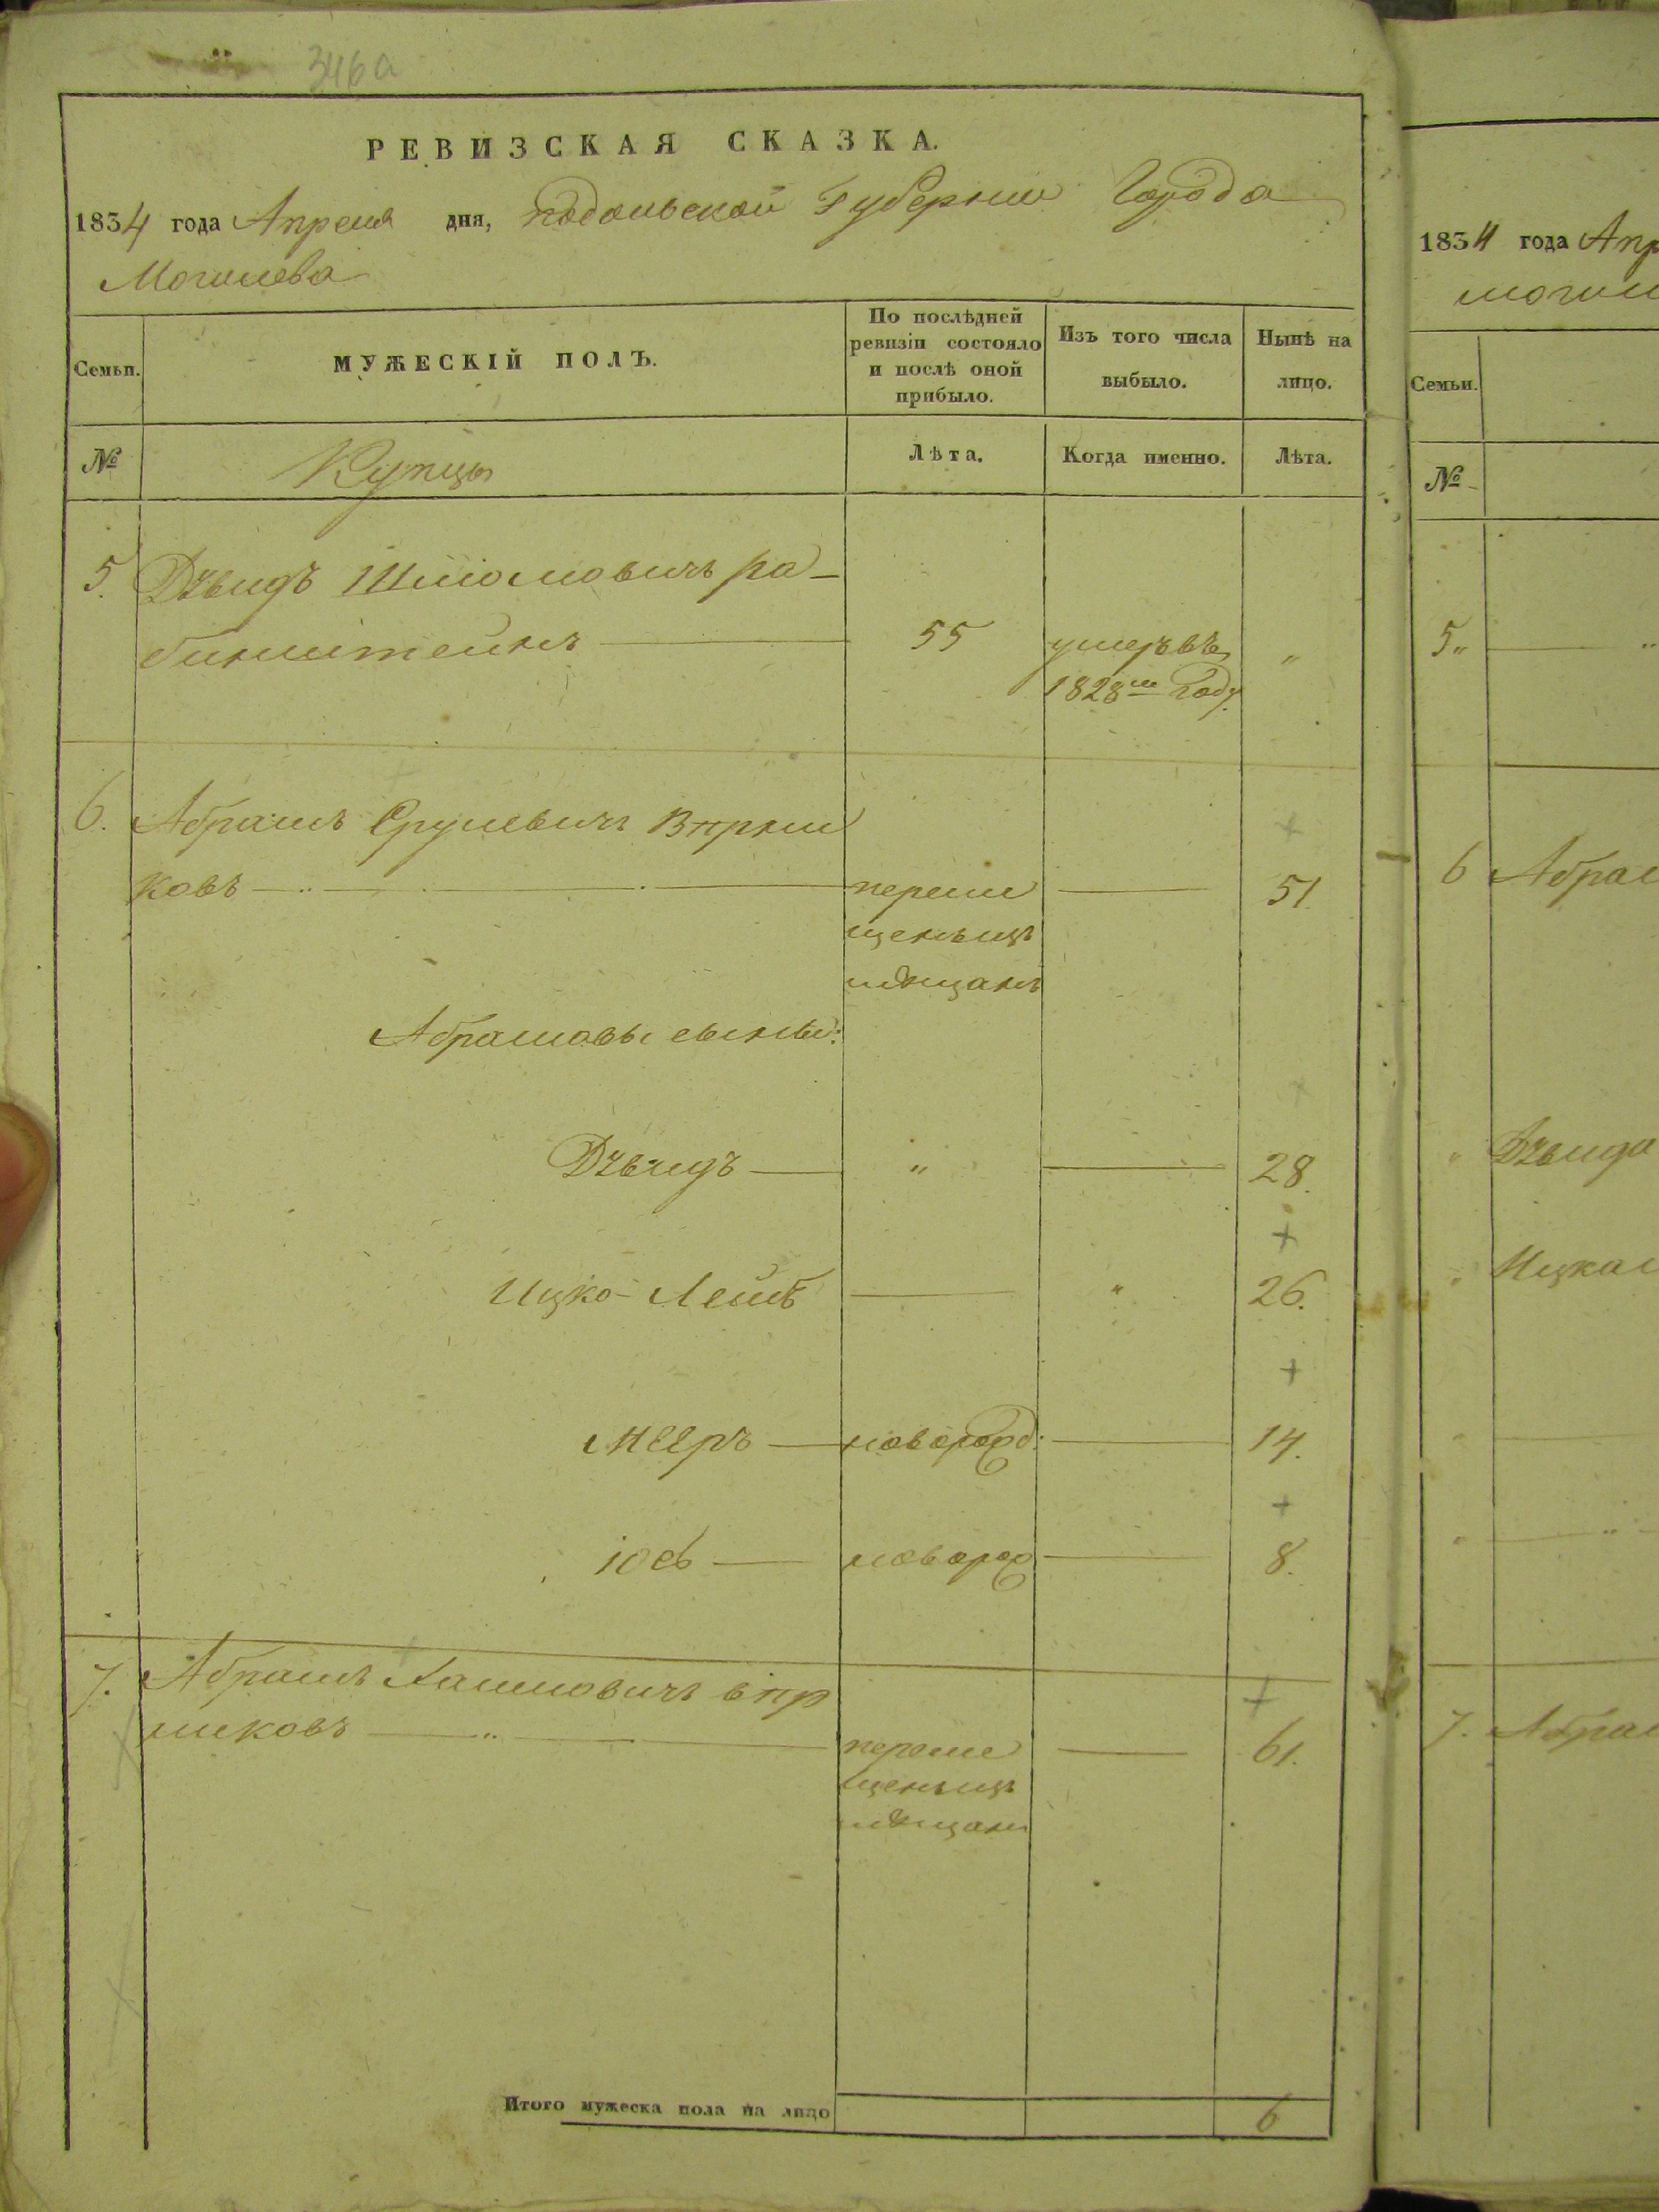 346а
РЕВИЗСКАЯ СКАЗКА.
1834 года Апреля дня, подольской Губернии Города
Могилева
Семьи.
МУЖЕСКІЙ ПОЛЪ.
По послѣдней ревизіи состояло и послѣ оной прибыло.
Изъ того числа выбыло.
Нынѣ на лицо.
№
Купцы
Лѣта.
Когда именно.
Лѣта.
5. Дувидъ Шліомовичъ ра-
бинштейнъ 55 умеръ въ "
1828м году.
6. Абрамъ Срулевичъ
ковъ переме 51.
щенъ изъ
мѣщанъ
Абрамовы сыны:
Дувидъ " 28.
Ицко-Лейб " 26.
Мееръ новорожд: 14.
Іос новорож 8.
7. Абрамъ Хаимовичъ впр
никовъ переме 61.
щенъ изъ
мѣщанъ
Итого мужеска пола на лицо 6
1834 года Апр
могил
Семьи.
№
5"
6 Абрам
" Дувида
" Ицка
7. Абрам